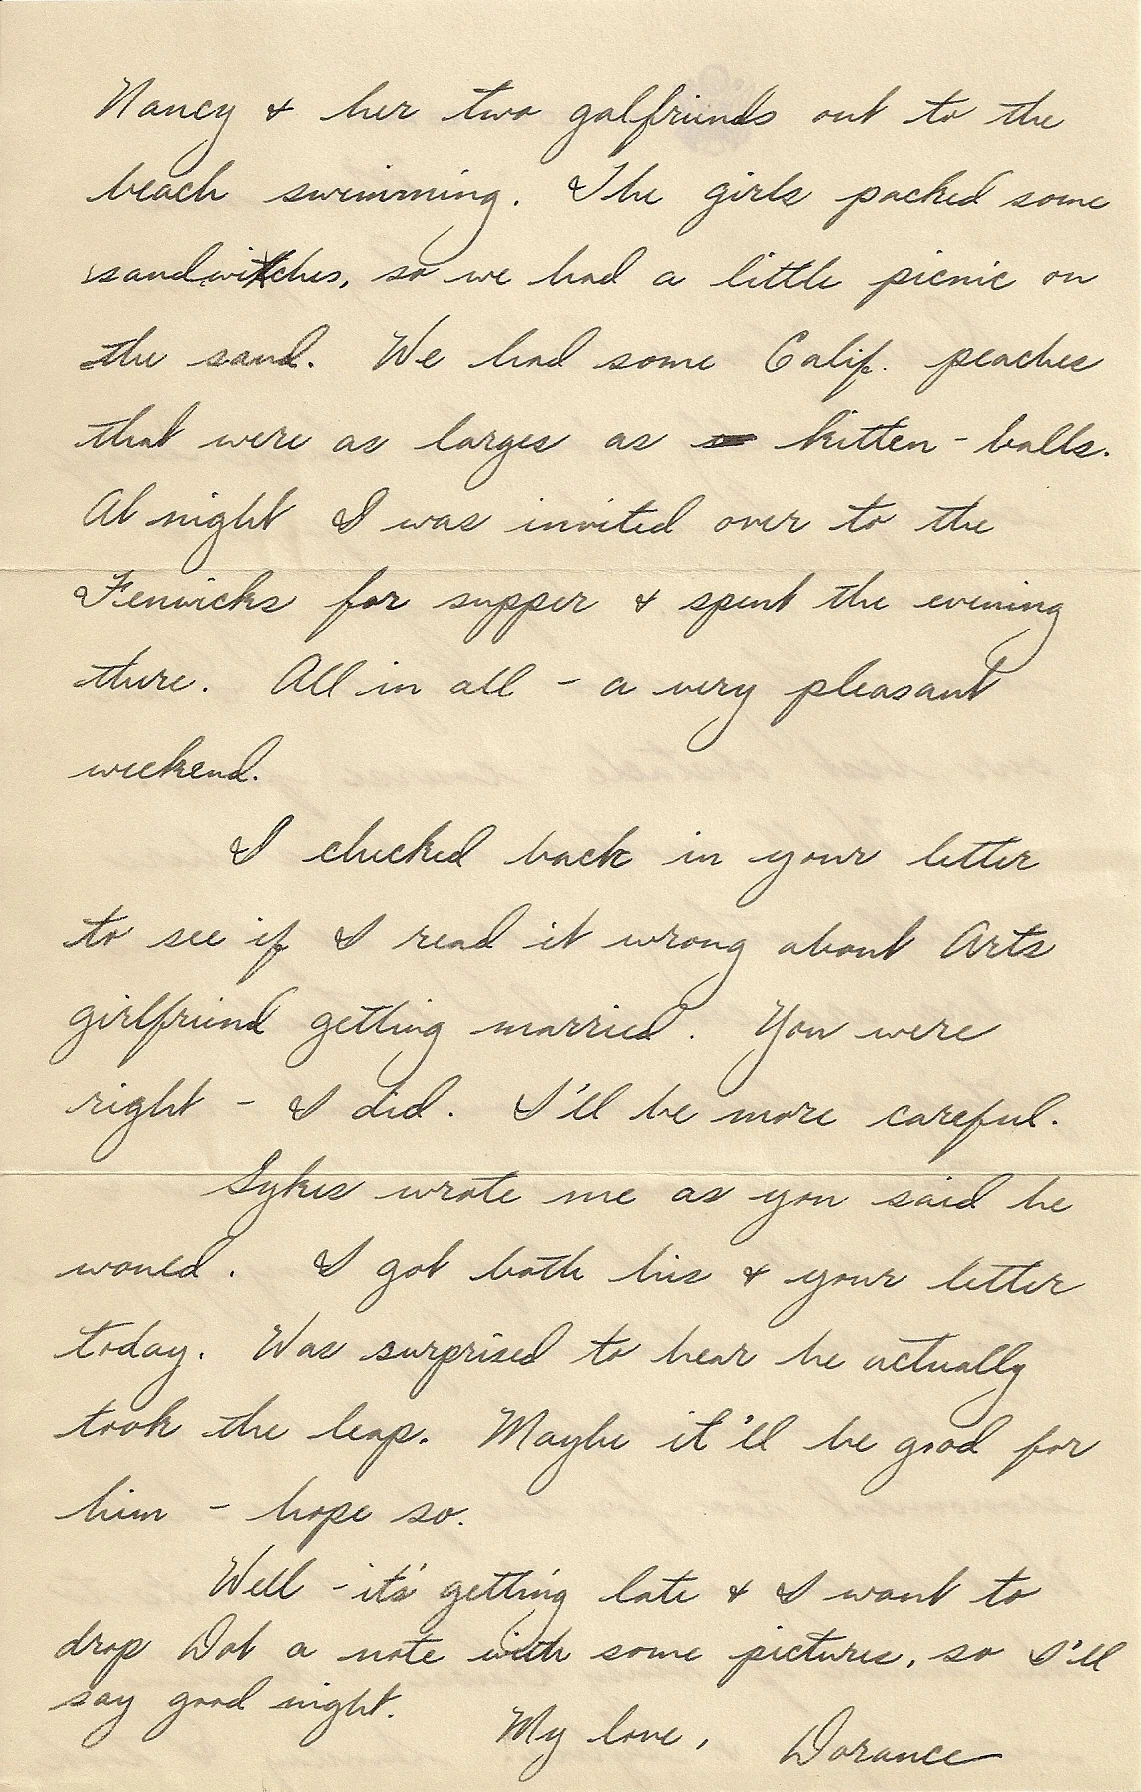 Nancy & her two galfriends out to the
beach swimming. The girls packed some
sandwitches, so we had a little picnic on
the sand. We had some Calif. peaches
that were as larges as kitten-balls.
At night I was invited over to the
Fenwicks for supper & spent the evening
there. All in all - a very pleasant
weekend.
I checked back in your letter
to see if I read it wrong about Arts
girlfriend getting married. You were
right - I did. I'll be more careful.
Sykes wrote me as you said he
would. I got both his & your letter
today. Was surprised to hear he actually
took the leap. Maybe it'll be good for
him - hope so.
Well - it's getting late & I want to
drop Dot a note with some pictures, so I'll
say good night.
My love, Dorance